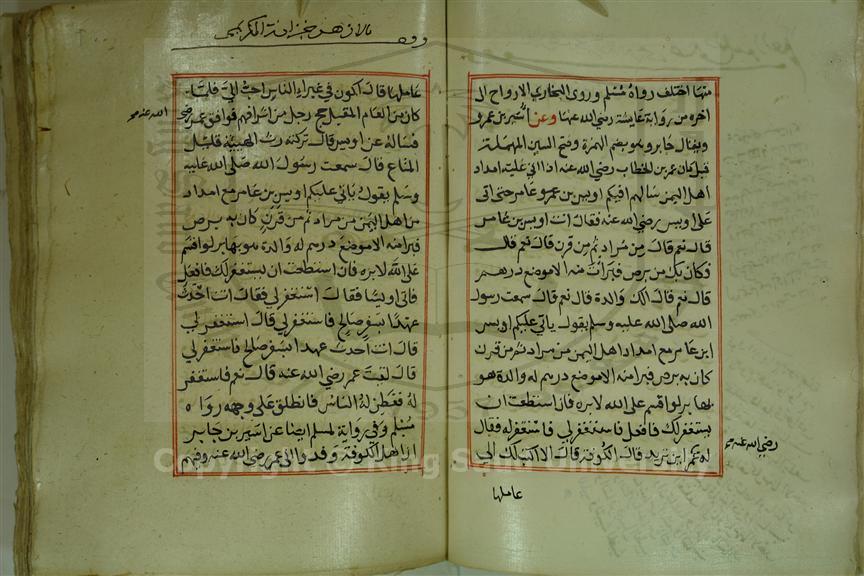 منها اختلف رواه مسلم وروى البخاري الارواح الى
اخره من رواية عايشة رضي الله عنها وعن اُسير بن عمرو
ويقال جابر وهو بضم الهمزة وفتح السين المهملة
قيل كان عمر بن الخطاب رضي الله عنه اذا اتى عليه امداد
اهل اليمن سالهم افيكم اويس بن عامر حتى اتى
على اويس رضي الله عنه فقال انت اويس بن عامر
قال نعم قال من مراد ثم من قرن قال نعم قال
فكان بك من برص فبرأت منه الا موضع درهم
قال نعم قال لك والدة قال نعم قال سمعت رسول
الله صلى الله عليه وسلم يقول ياتي عليكم اويس
ابن عامر مع امداد اهل اليمن من مراد ثم من قرن
كان به برص فبرا منه الا موضع درهم له والدة هو
بها بر لو اقسم على الله لابره فان استطعت ان
يستغفر لك فافعل فاستغفر لي فاستغفر له فقال
له عمر اين تريد قال الكوفة قال الا اكتب لك الى
رضي الله عنه
عاملها
عاملها قال اكون في غبراء الناس احب الي فلما
كان من العام المقبل حج رجل من اشرافهم فوافق عمر
رضي الله عنه
فساله عن اويس قال تركته رث الهيية قليل
المتاع قال سمعت رسول الله صلى الله عليه
وسلم يقول ياتي عليكم اويس بن عامر مع امداد
من اهل اليمن من مراد ثم من قرن كان به برص
فبرا منه الا موضع درهم له والدة هو بها بر لو اقسم
على الله لابره فان استطعت ان يستغفر لك فافعل
فاتى اويسا فقال استغفر لي فقال انت احدث
عهدا بسفر صالح فاستغفر لي قال استغفر لي
قال انت احدث عهدا بسفر صالح فاستغفر لي
قال لقيت عمر رضي الله عنه قال نعم فاستغفر
له ففطن له الناس فانطلق على وجهه رواه
مسلم وفي رواية لمسلم ايضا عن اسير بن جابر
ان اهل الكوفة وفدوا الى عمر رضي الله عنه وفيهم